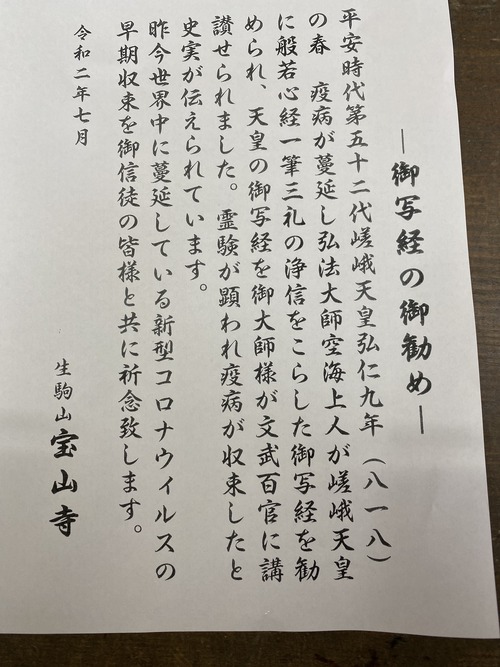 ―御写経の御勧め―
平安時代第五十二代嵯峨天皇弘仁九年（八一八）
の春　疫病が蔓延し弘法大師空海上人が嵯峨天皇
に般若心経一筆三礼の浄信をこらした御写経を勧
められ、天皇の御写経を御大師様が文武百官に講
讃せられました。霊験が顕われ疫病が収束したと
史実が伝えられています。
昨今世界中に蔓延している新型コロナウイルスの
早期収束を御信徒の皆様と共に祈念致します。
令和二年七月
生駒山 宝山寺